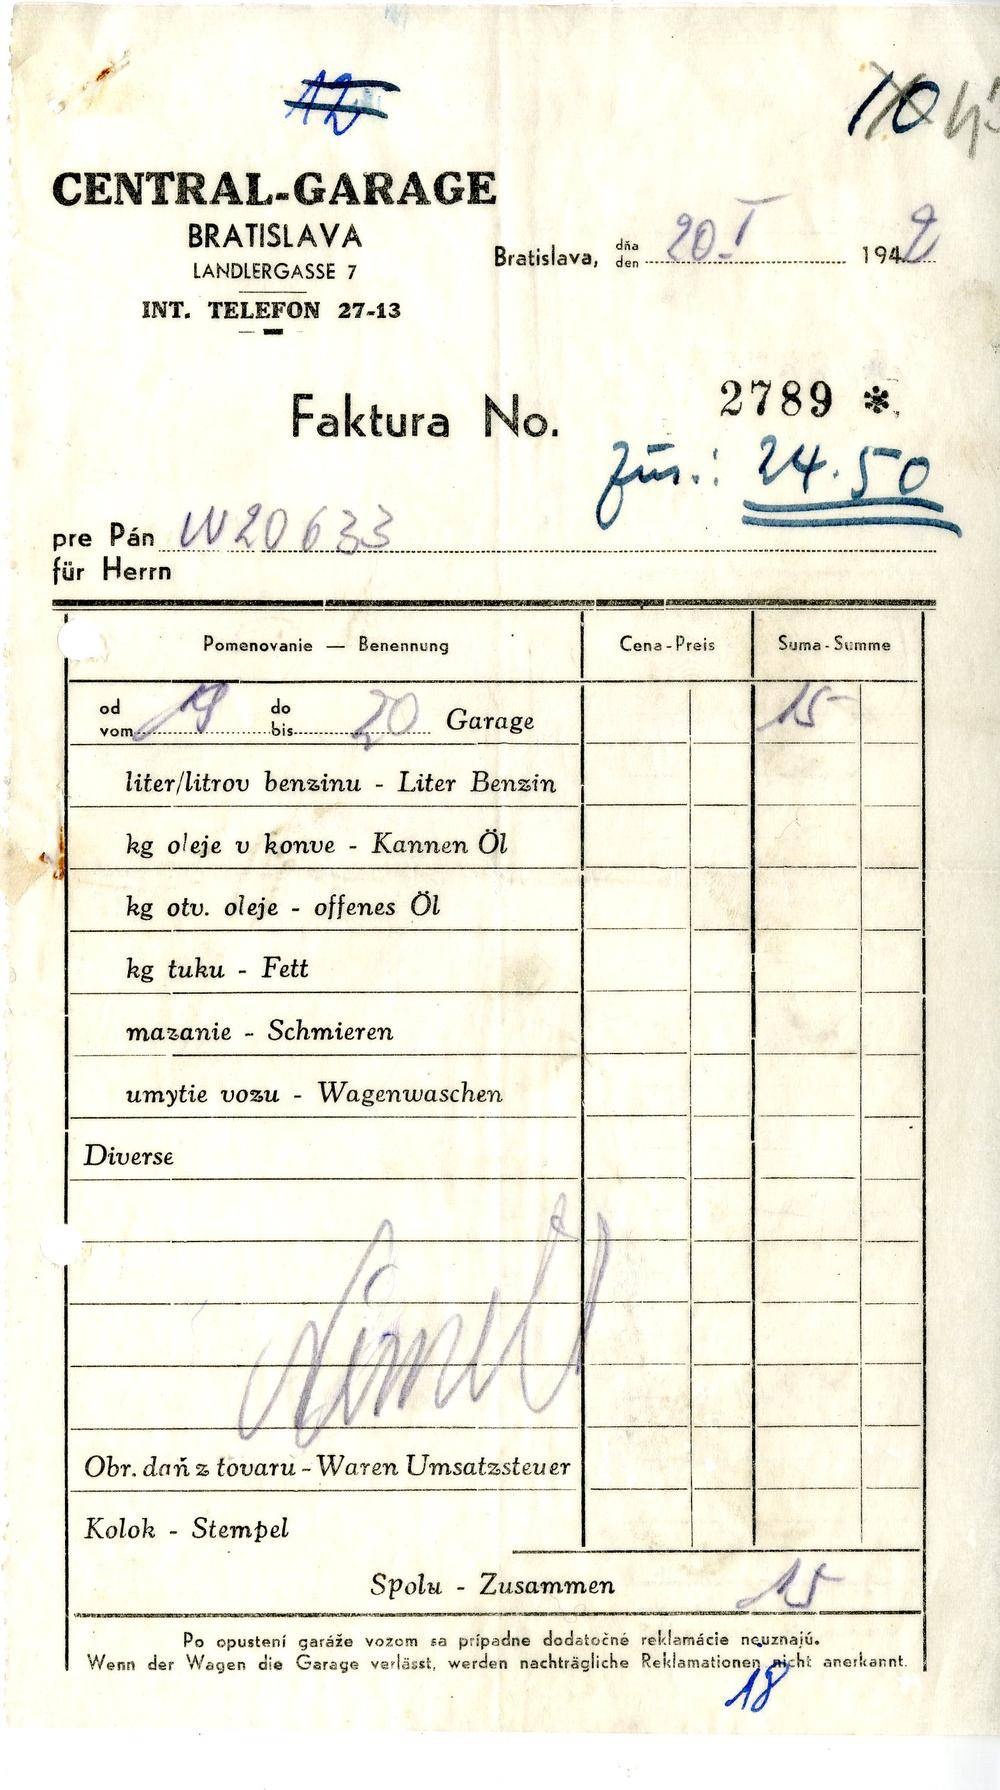 12
10
CENTRAL-GARAGE
BRATISLAVA
LANDLERGASSE 7
INT. TELEFON 27-13
Bratislava, dňa den 20. I 1942
Faktura No. 2789 *
zus.: 24.50
pre Pán W 20633
für Herrn
Pomenovanie — Benennung Cena-Preis Suma-Summe
od vom 19 do bis 20 Garage 15
liter/litrov benzinu - Liter Benzin
kg oleje v konve - Kannen Öl
kg otv. oleje - offenes Öl
kg tuku - Fett
mazanie - Schmieren
umytie vozu - Wagenwaschen
Diverse
Obr. daň z tovaru - Waren Umsatzsteuer
Kolok - Stempel
Spolu - Zusammen 15
Po opustení garáže vozom sa prípadne dodatočné reklamácie neuznajú.
Wenn der Wagen die Garage verlässt, werden nachträgliche Reklamationen nicht anerkannt.
18